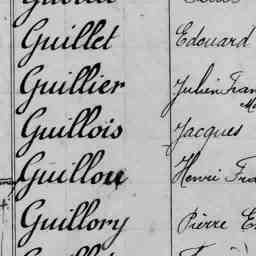 Guillet Edouard
Guillier Julien Fran
Guillois Jacques
Guillou Henri Fra
Guillory Pierre E